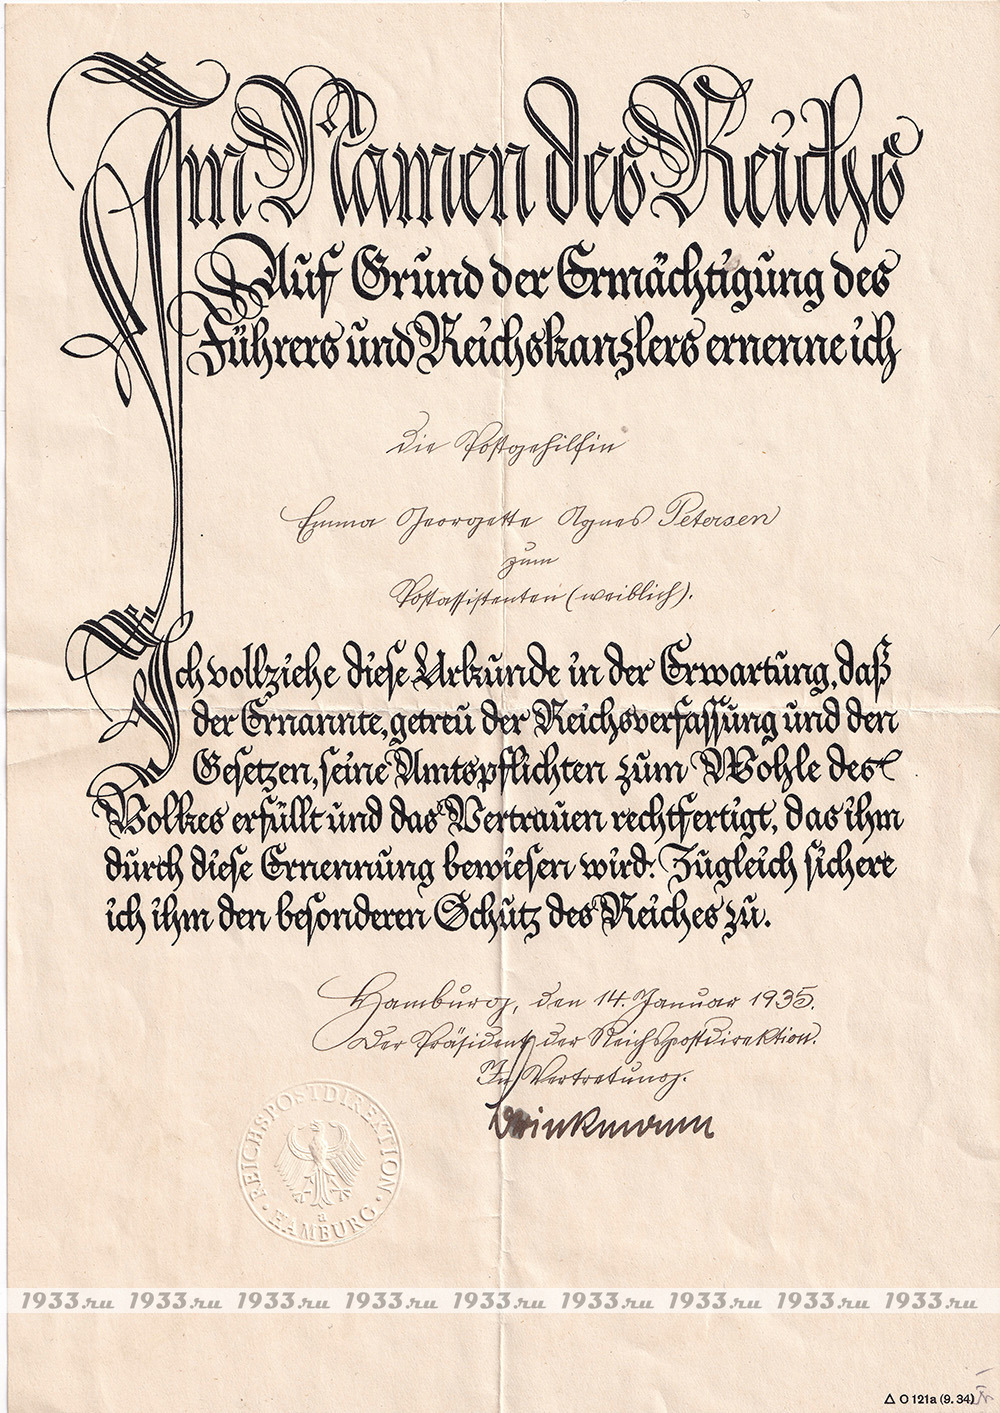 Im Namen des Reichs
Auf Grund der Ermächtigung des
Führers und Reichskanzlers ernenne ich
die Postgehilfin
Emma Georgette Agnes Petersen
zum
Postassistenten (weiblich).
Ich vollziehe diese Urkunde in der Erwartung, daß
der Ernannte, getreu der Reichsverfassung und den
Gesetzen, seine Amtspflichten zum Wohle des
Volkes erfüllt und das Vertrauen rechtfertigt, das ihm
durch diese Ernennung bewiesen wird. Zugleich sichere
ich ihm den besonderen Schutz des Reiches zu.
Hamburg, den 14. Januar 1935.
Der Präsident der Reichspostdirektion.
In Vertretung.
Brinkmann
REICHSPOSTDIREKTION
a
HAMBURG
1933.ru 1933.ru 1933.ru 1933.ru 1933.ru 1933.ru 1933.ru 1933.ru 1933.ru
Δ O 121a (9. 34)